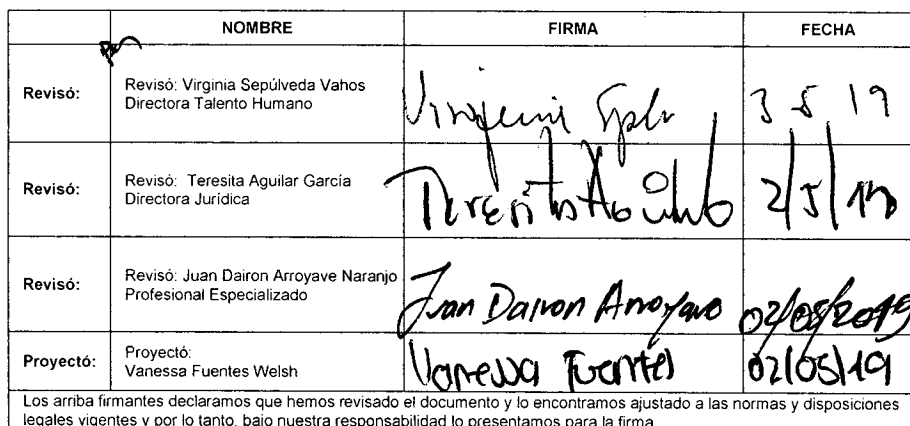 NOMBRE FIRMA FECHA
Revisó: Revisó: Virginia Sepúlveda Vahos
Directora Talento Humano
Virginia 3 5 19
Revisó: Revisó: Teresita Aguilar García
Directora Jurídica
Teresita Aguilar 2/5/19
Revisó: Revisó: Juan Dairon Arroyave Naranjo
Profesional Especializado
Juan Dairon Arroyave 02/05/2019
Proyectó: Proyectó:
Vanessa Fuentes Welsh
Vanessa Fuentes 02/05/19
Los arriba firmantes declaramos que hemos revisado el documento y lo encontramos ajustado a las normas y disposiciones
legales vigentes y por lo tanto, bajo nuestra responsabilidad lo presentamos para la firma.